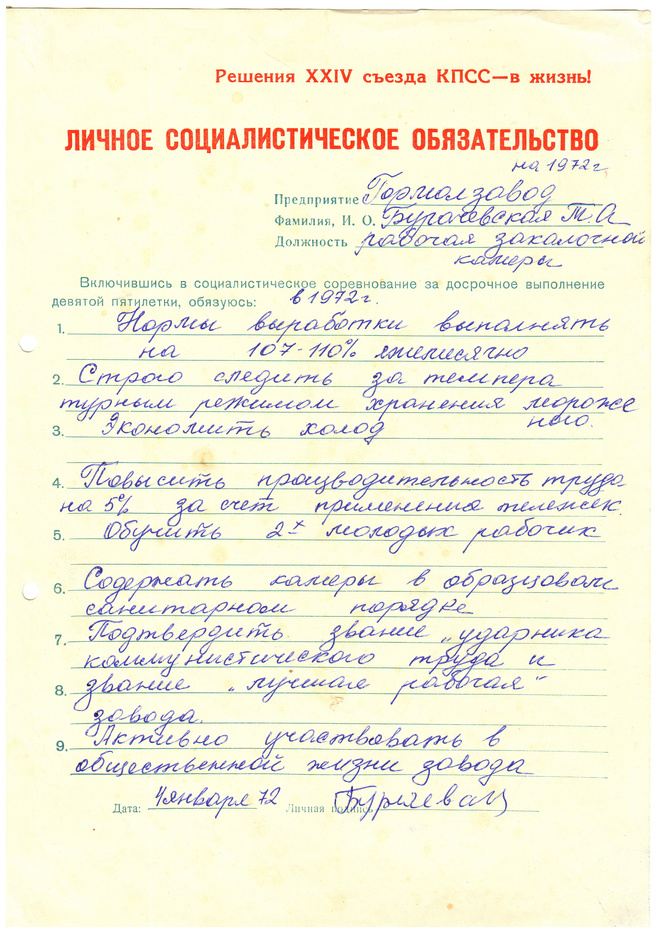 Решения XXIV съезда КПСС—в жизнь!
ЛИЧНОЕ СОЦИАЛИСТИЧЕСКОЕ ОБЯЗАТЕЛЬСТВО
на 1972 г.
Предприятие Гормолзавод
Фамилия, И. О. Бурачевская Т. А
Должность рабочая закалочной
камеры
Включившись в социалистическое соревнование за досрочное выполнение
девятой пятилетки, обязуюсь: в 1972 г.
1. Нормы выработки выполнять
на 107-110% ежемесячно
2. Строго следить за темпера
турным режимом хранения мороже
ного.
3. Экономить холод
4. Повысить производительность труда
на 5% за счет применения тележек.
5. Обучить 2х молодых рабочих
6. Содержать камеры в образцовом
санитарном порядке
7. Подтвердить звание „ударника
коммунистического труда и
8. звание „лучшая рабочая"
завода.
9. Активно участвовать в
общественной жизни завода
Дата: 4 января 72 Личная подпись